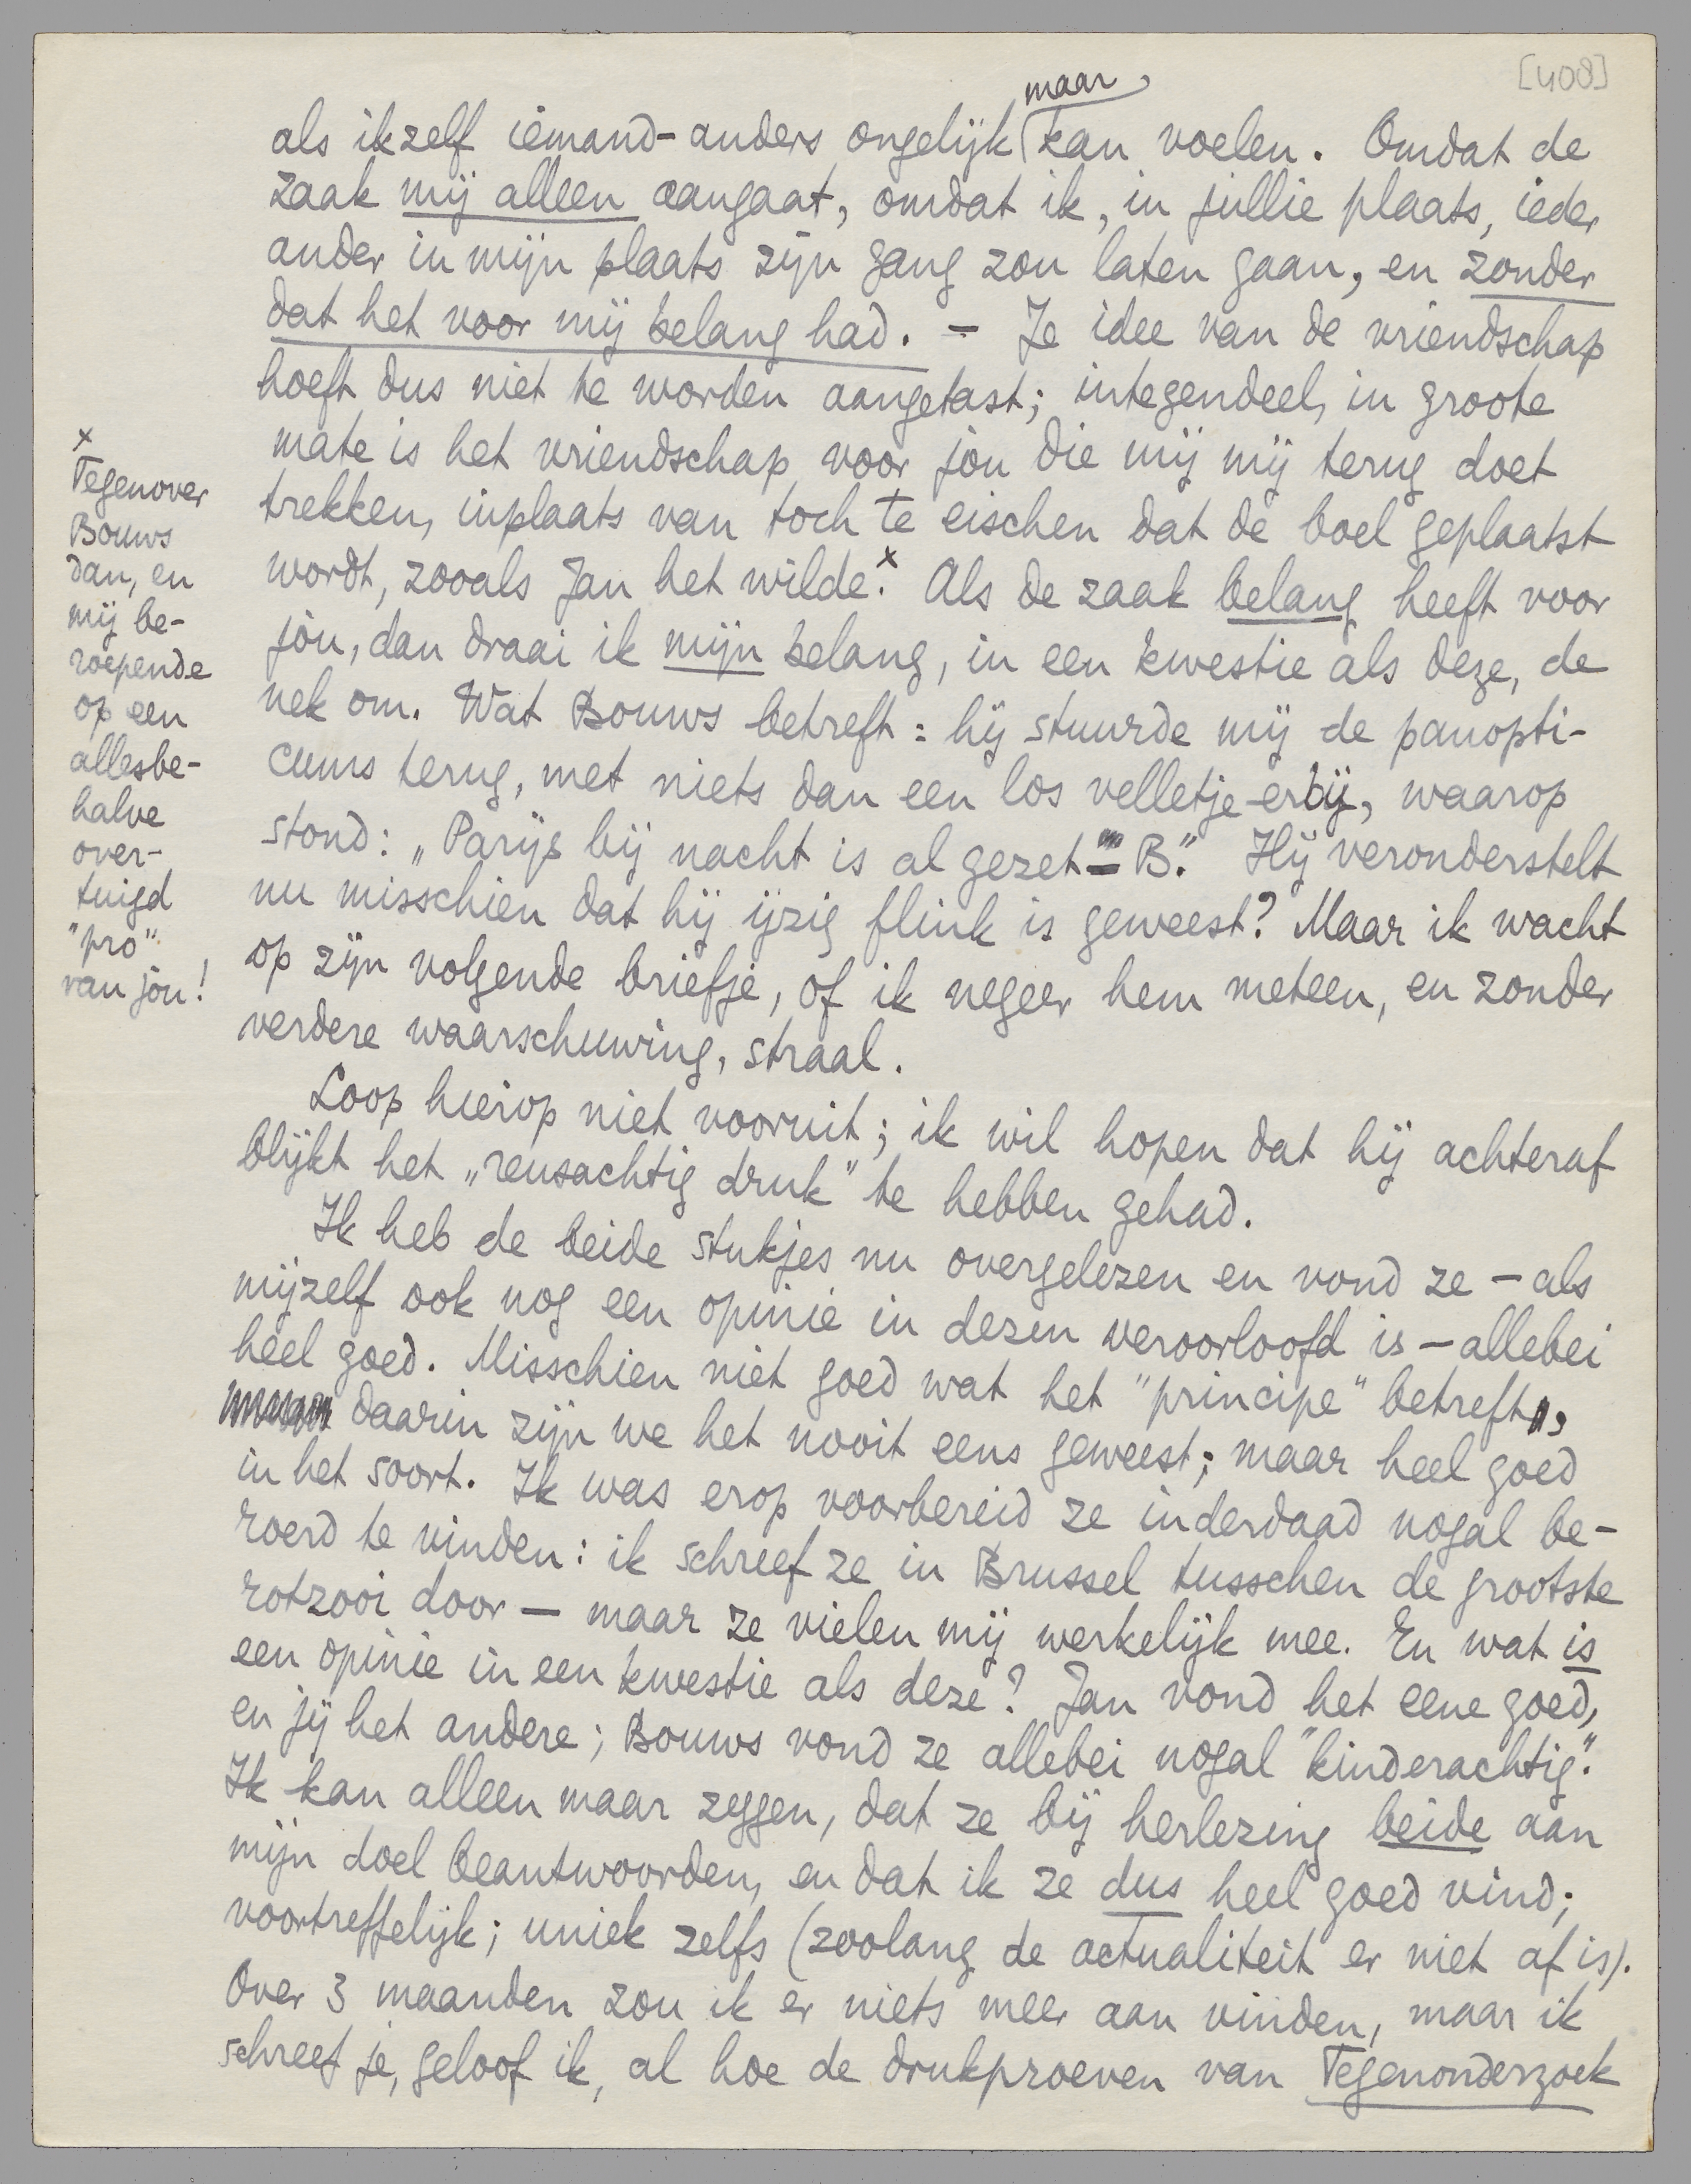 [408]
maar
als ikzelf iemand-anders ongelijk kan voelen. Omdat de
zaak mij alleen aangaat, omdat ik, in jullie plaats, ieder
ander in mijn plaats zijn gang zou laten gaan, en zonder
dat het voor mij belang had. – Je idee van de vriendschap
hoeft dus niet te worden aangetast; integendeel, in groote
mate is het vriendschap voor jòu die mij mij terug doet
trekken, inplaats van toch te eischen dat de boel geplaatst
wordt, zooals Jan het wilde.x Als de zaak belang heeft voor
jòu, dan draai ik mijn belang, in een kwestie als deze, de
nek om. Wat Bouws betreft: hij stuurde mij de panopti-
cums terug, met niets dan een los velletje erbij, waarop
stond: „Parijs bij nacht is al gezet" – B." Hij veronderstelt
nu misschien dat hij ijzig flink is geweest? Maar ik wacht
op zijn volgende briefje, of ik negeer hem meteen, en zonder
verdere waarschuwing, straal.
Loop hierop niet vooruit; ik wil hopen dat hij achteraf
blijkt het „reusachtig druk" te hebben gehad.
Ik heb de beide stukjes nu overgelezen en vond ze – als
mijzelf ook nog een opinie in dezen veroorloofd is – allebei
heel goed. Misschien niet goed wat het "principe" betreft,
daarin zijn we het nooit eens geweest; maar heel goed
in het soort. Ik was erop voorbereid ze inderdaad nogal be-
roerd te vinden: ik schreef ze in Brussel tusschen de grootste
rotzooi door – maar ze vielen mij werkelijk mee. En wat is
een opinie in een kwestie als deze? Jan vond het eene goed,
en jij het andere; Bouws vond ze allebei nogal "kinderachtig".
Ik kan alleen maar zeggen, dat ze bij herlezing beide aan
mijn doel beantwoorden, en dat ik ze dus heel goed vind;
voortreffelijk; uniek zelfs (zoolang de actualiteit er niet af is).
Over 3 maanden zou ik er niets meer aan vinden, maar ik
schreef je, geloof ik, al hoe de drukproeven van Tegenonderzoek
x
Tegenover
Bouws
dan, en
mij be-
roepende
op een
allesbe-
halve
over-
tuigd
"pro"
van jòu!